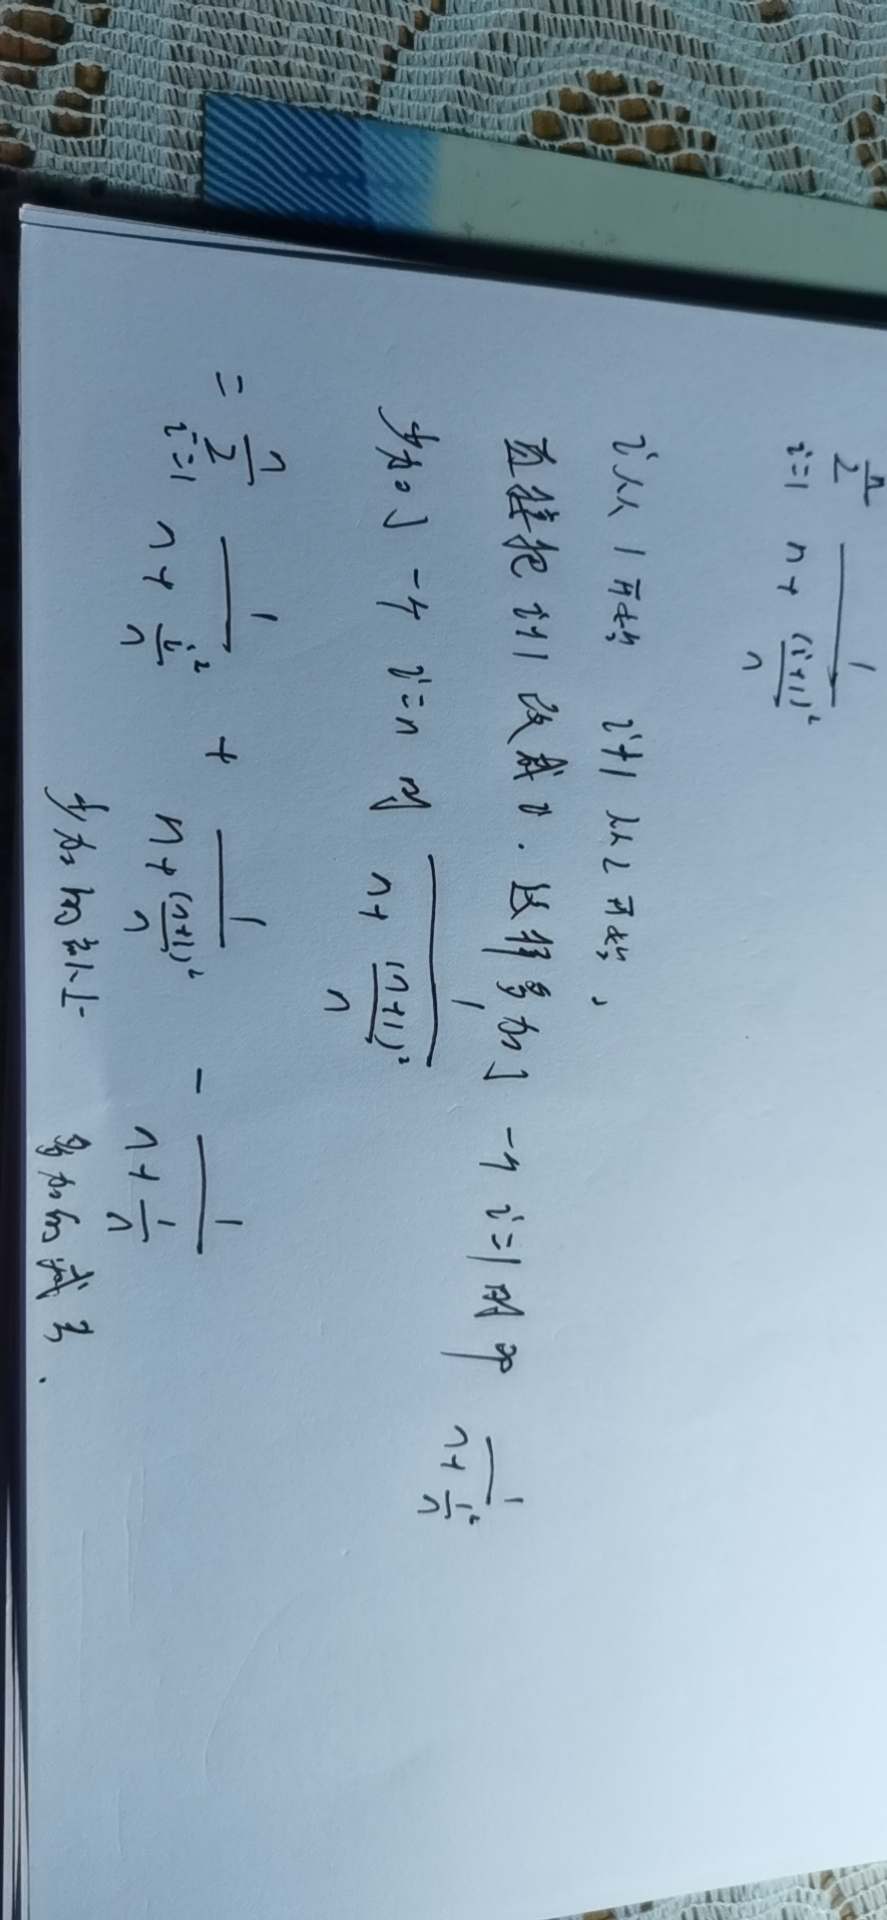 \sum_{i=1}^{n} \frac{1}{n+\frac{(i+1)^2}{n}}
i从1开始, i+1从2开始,
直接把i+1改成i. 这样多加了一个i=1时即 \frac{1}{n+\frac{1^2}{n}}
少加了一个i=n时 \frac{1}{n+\frac{(n+1)^2}{n}}
= \sum_{i=1}^{n} \frac{1}{n+\frac{i^2}{n}} + \frac{1}{n+\frac{(n+1)^2}{n}} - \frac{1}{n+\frac{1}{n}}
少加的补上 多加的减去.